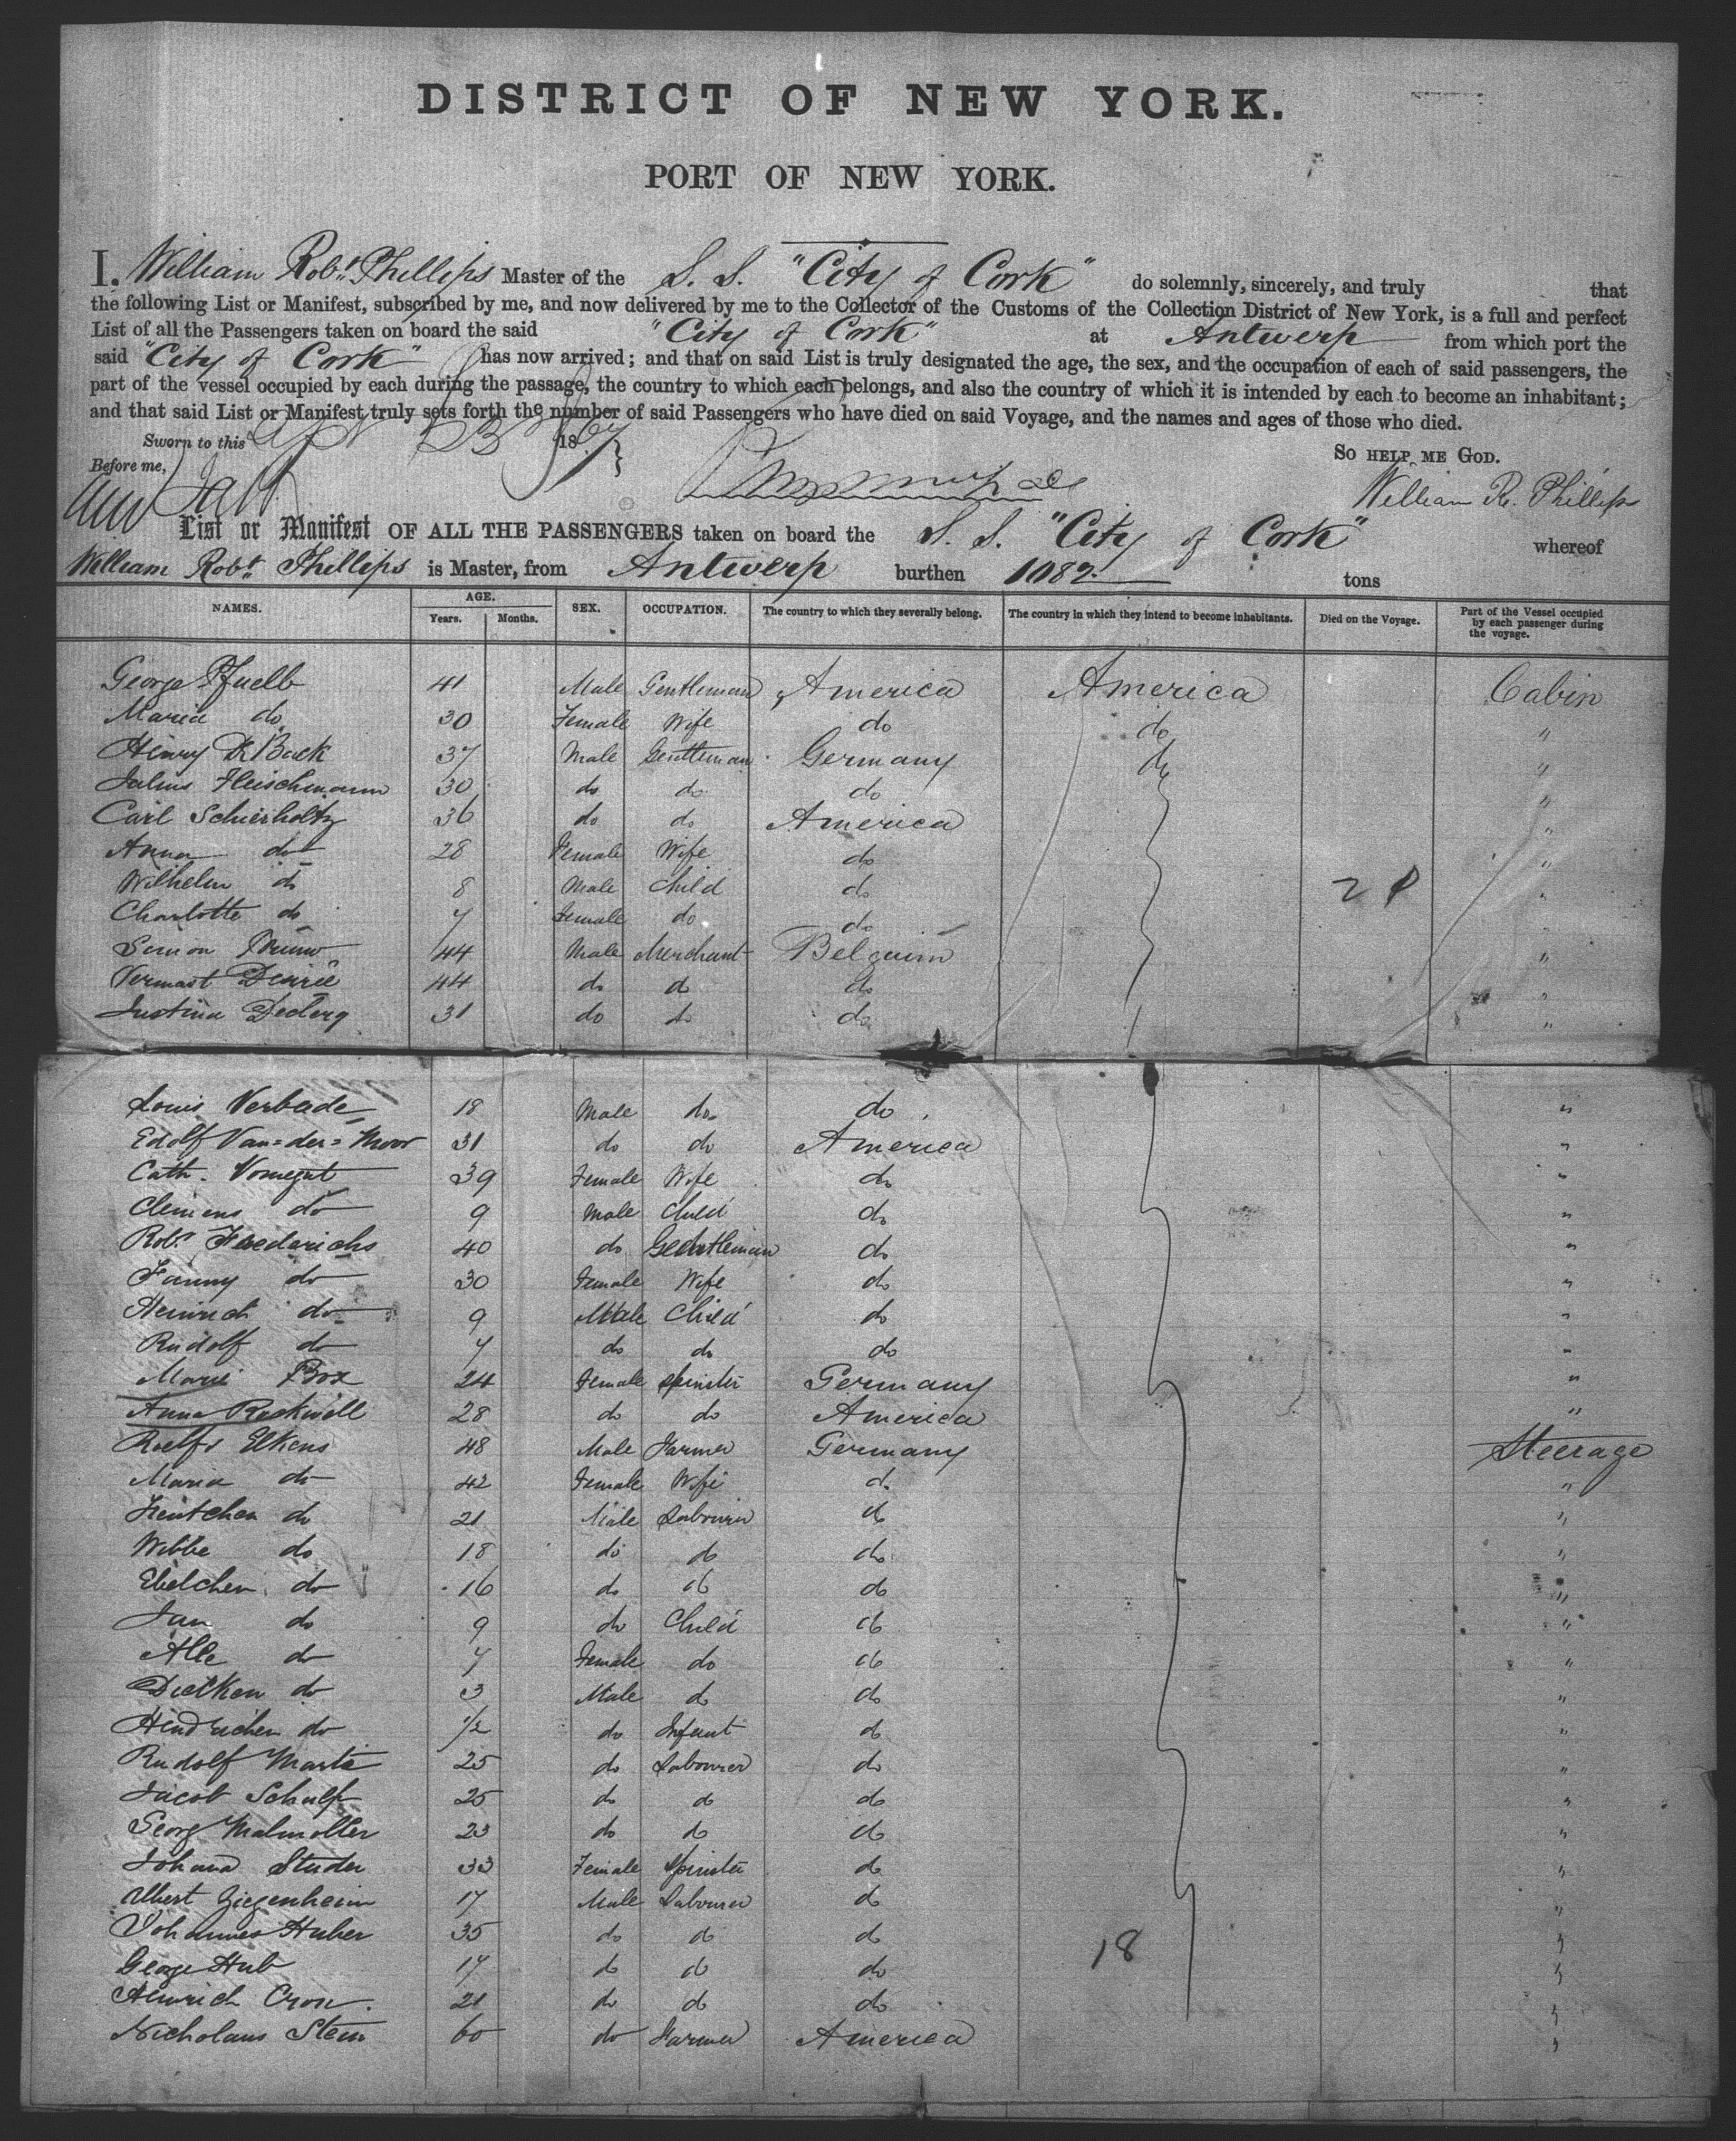 DISTRICT OF NEW YORK.
PORT OF NEW YORK.
I, William Robt. Phillips Master of the S. S. "City of Cork" do solemnly, sincerely, and truly that
the following List or Manifest, subscribed by me, and now delivered by me to the Collector of the Customs of the Collection District of New York, is a full and perfect
List of all the Passengers taken on board the said "City of Cork" at Antwerp from which port the
said "City of Cork" has now arrived; and that on said List is truly designated the age, the sex, and the occupation of each of said passengers, the
part of the vessel occupied by each during the passage, the country to which each belongs, and also the country of which it is intended by each to become an inhabitant;
and that said List or Manifest truly sets forth the number of said Passengers who have died on said Voyage, and the names and ages of those who died.
Sworn to this 23 1867 So HELP ME GOD.
Before me, William R. Phillips
List or Manifest OF ALL THE PASSENGERS taken on board the S. S. "City of Cork" whereof
William Robt. Phillips is Master, from Antwerp burthen 1082 tons
NAMES. AGE. Years. Months. SEX. OCCUPATION. The country to which they severally belong. The country in which they intend to become inhabitants. Died on the Voyage. Part of the Vessel occupied by each passenger during the voyage.
George Pfuelb 41 Male Gentleman America America Cabin
Maria do 30 Female Wife do do "
Henry Back 37 Male Gentleman Germany do "
Julius Fleischmann 30 do do do "
Carl Schierholtz 36 do do America "
Anna do 28 Female Wife do "
Wilhelm do 8 Male Child do 21 "
Charlotte do 7 Female do do "
Simon 44 Male Merchant Belguim "
Vermast Desireé 44 do do do "
Justina Declerq 31 do do do "
Louis Verbade 18 Male do do "
Edolf Van=der=Moor 31 do do America "
Cath. Vonnegut 39 Female Wife do "
Clemens do 9 Male Child do "
Robt. Friederichs 40 do Gentleman do "
Fanny do 30 Female Wife do "
Heinrich do 9 Male Child do "
Rudolf do 7 do do do "
Marie Box 24 Female Spinster Germany "
Anna Rockwell 28 do do America "
Roelfs Elkens 48 Male Farmer Germany Steerage
Maria do 42 Female Wife do "
Trentchen do 21 Male Labourer do "
Wibbe do 18 do do do "
Ebelchen do 16 do do do "
Jan do 9 do Child do "
Alle do 7 Female do do "
Dietken do 3 Male do do "
Hindrichen do 1/2 do Infant do "
Rudolf Marti 25 do Labourer do "
Jacob Schalk 25 do do do "
Georg Malmoller 23 do do do "
Johana Studer 33 Female Spinster do "
Albert Ziegenheim 17 Male Labourer do "
Johannes Huber 35 do do do "
George Hub 17 do do do 18 "
Heinrich Cron. 21 do do do "
Nicholaus Stein 60 do Farmer America "